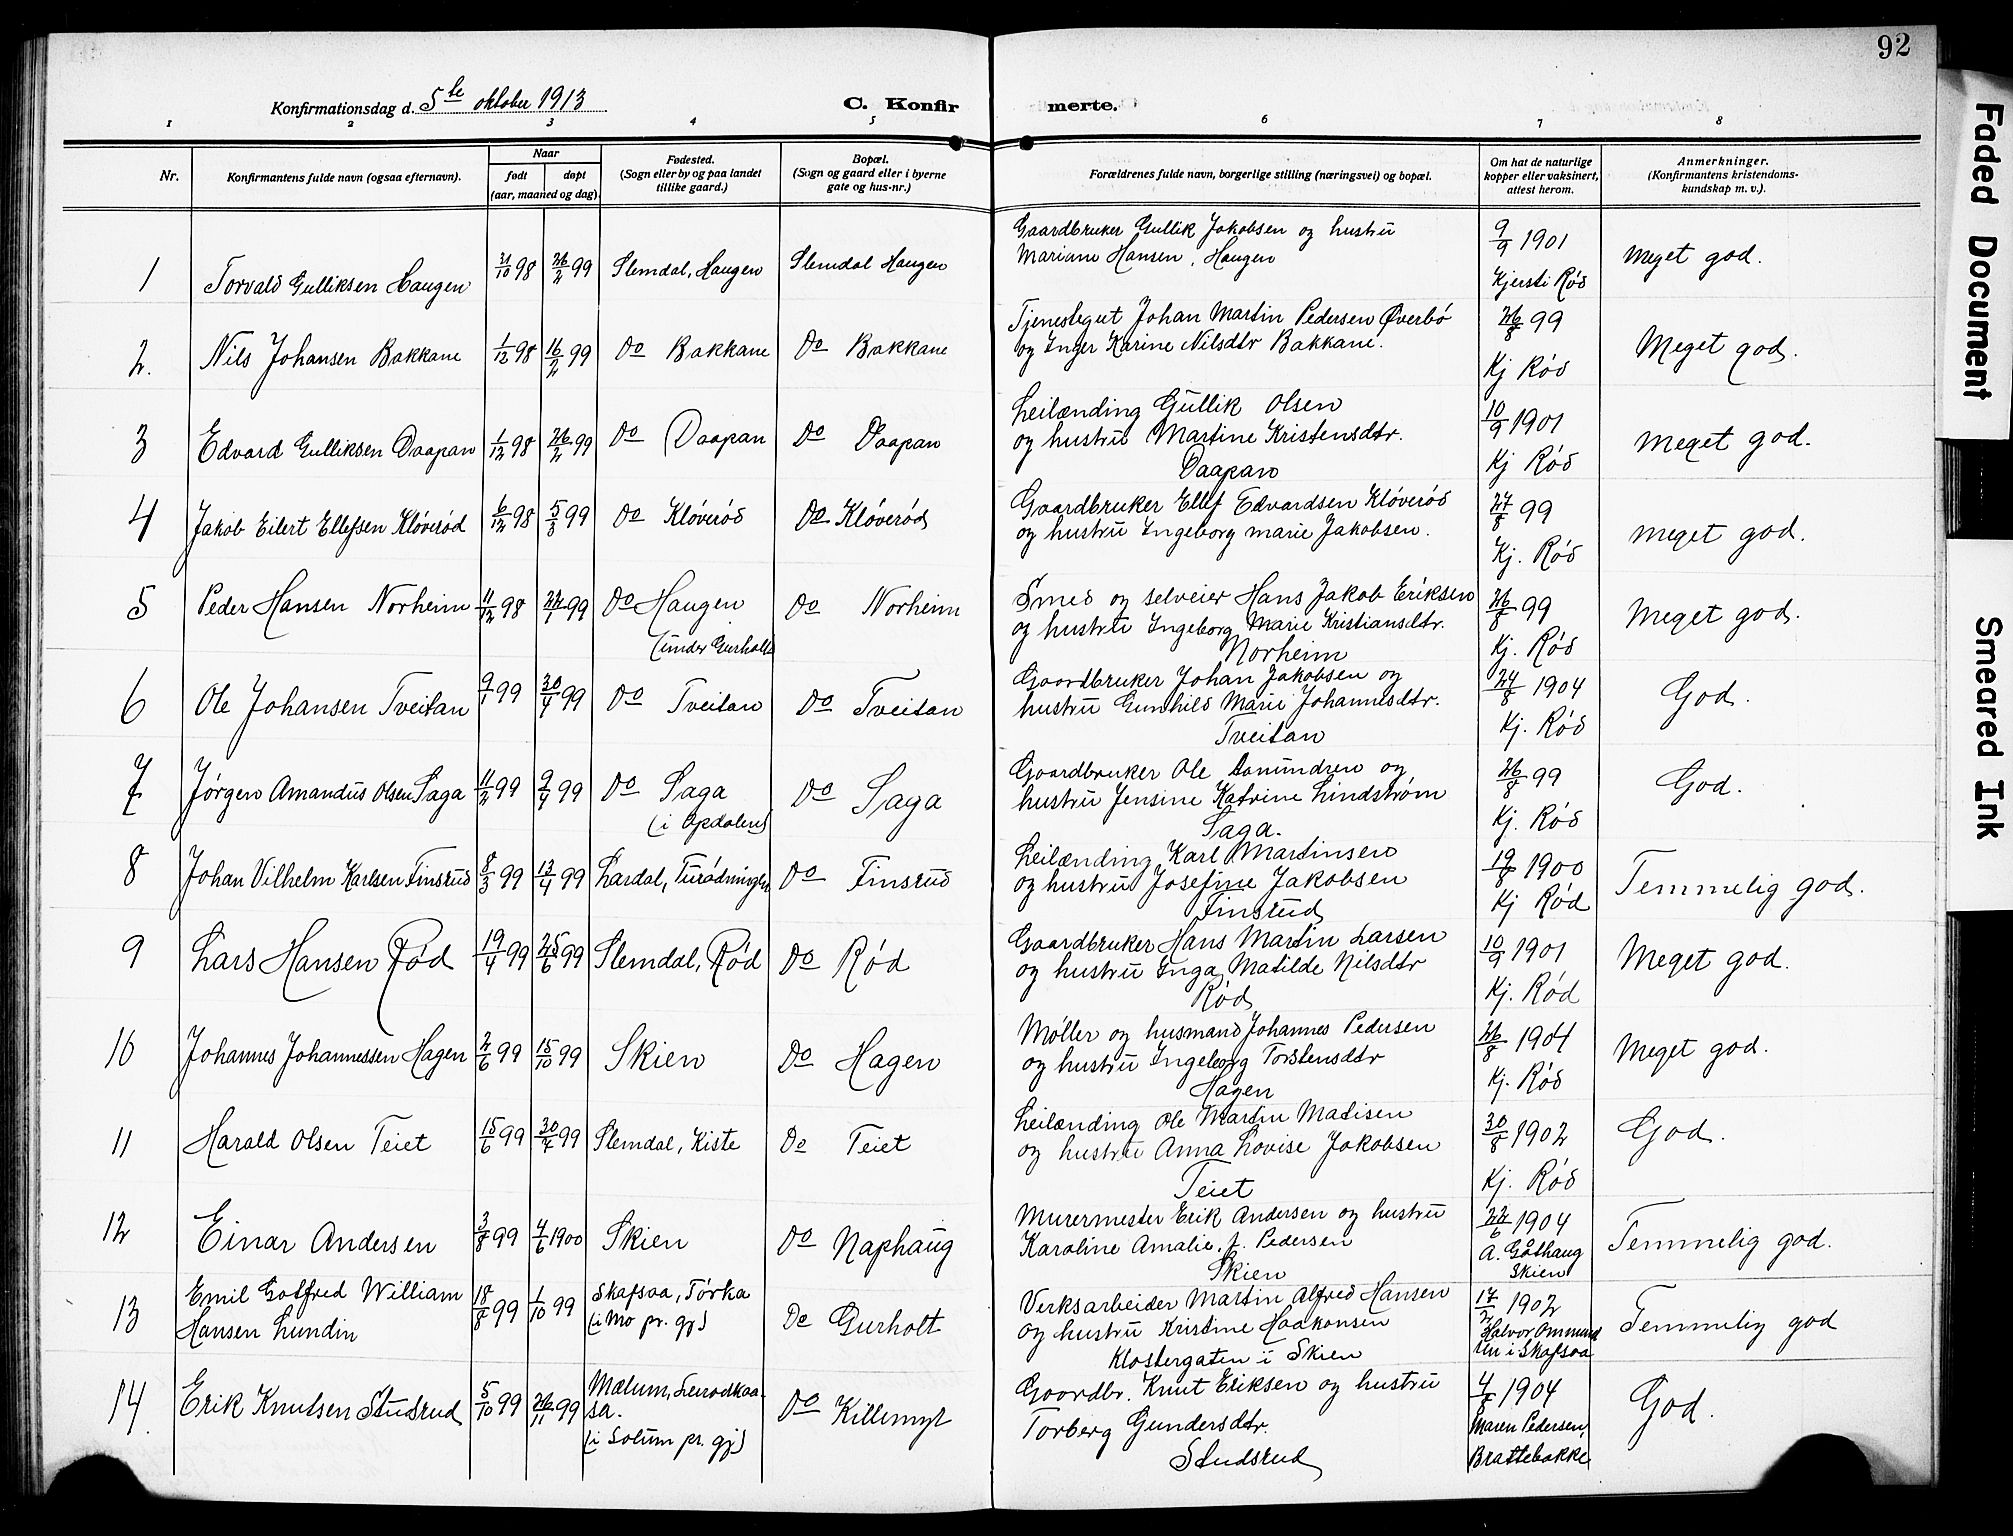 92
Konfirmationsdag d. 5te oktober 1913
C. Konfir merte.
1 2 3 4 5 6 7 8
Nr.
Konfirmantens fulde navn (ogsaa efternavn).
Naar
født
døpt
(aar, maaned og dag).
Fødested.
(Sogn eller by og paa landet
tillike gaard.)
Bopæl.
(Sogn og gaard eller i byerne
gate og hus-nr.)
Forældrenes fulde navn, borgerlige stilling (næringsvei) og bopæl.
Om hat de naturlige
kopper eller vaksinert,
attest herom.
Anmerkninger.
(Konfirmantens kristendoms-
kundskap m. v.).
1 Torvald Gulliksen Haugen 21/10 98 26/2 99 Slemdal, Haugen Slemdal Haugen
Gaardbruker Gullik Jakobsen og hustru
Mariane Hansen, Haugen
9/9 1901
Kjersti Rød
Meget god.
2. Nils Johansen Bakkane 1/12 98 16/2 99 Do Bakkane Do Bakkane
Tjenestegut Johan Martin Pedersen Øverbø
og Inger Karine Nilsdtr Bakkane.
26/8 99
Kj Rød
Meget god.
3 Edvard Gulliksen Daapan 1/12 98 26/2 99 Do Daapan Do Daapan
Leilænding Gullik Olsen
og hustru Martine Kristensdtr.
Daapan
10/9 1901
Kj Rød
Meget god.
4 Jakob Eilert Ellefsen Kløverød 6/12 98 5/3 99 Do Kløverød Do Kløverød
Gaardbruker Ellef Edvardsen Kløverød
og hustru Ingeborg Marie Jakobsen.
27/8 99
Kj. Rød
Meget god.
5 Peder Hansen Norheim 11/12 98 22/1 99 Do Haugen
(under Gurholt)
Do Norheim
Smed og selveier Hans Jakob Eriksen
og hustru Ingeborg Marie Kristiansdtr.
Norheim
26/8 99
Kj. Rød
Meget god.
6 Ole Johansen Tveitan 9/1 99 30/4 99 Do Tveitan Do Tveitan
Gaardbruker Johan Jakobsen og
hustru Gunhild Marie Johannesdtr.
Tveitan
24/8 1904
Kj. Rød
God.
7 Jørgen Amandus Olsen Saga 11/2 99 9/4 99 Do Saga
(i Opdalen)
Do Saga
Gaardbruker Ole og
hustru Jensine Katrine Lindstrøm
Saga.
26/8 99
Kj. Rød
God.
8 Johan Vilhelm Karlsen Finsrud 8/3 99 13/4 99 Lardal, Do Finsrud
Leilænding Karl Martinsen
og hustru Josefine Jakobsen
Finsrud
19/8 1900
Kj Rød
Temmelig god.
9 Lars Hansen Rød 19/4 99 25/6 99 Slemdal, Rød Do Rød
Gaardbruker Hans Martin Larsen
og hustru Inga Matilde Nilsdtr
Rød
10/9 1901
Kj. Rød
Meget god.
10 Johannes Johannessen Hagen 2/6 99 15/10 99 Skien Do Hagen
Møller og husmand Johannes Pedersen
og hustru Ingeborg Torstensdtr
Hagen
26/8 1904
Kj. Rød
Meget god.
11 Harald Olsen Teiet 15/6 99 30/7 99 Slemdal, Kiste Do Teiet
Leilænding Ole Martin Madisen
og hustru Anna Lovise Jakobsen
Teiet
30/8 1902
Kj. Rød
God.
12 Einar Andersen 3/8 99 4/6 1900 Skien Do Naphaug
Murermester Erik Andersen og hustru
Karoline Amalie, f. Pedersen
Skien
22/6 1904
A. Gåthaug
Skien
Temmelig god.
13 Emil Gotfred William
Hansen Lundin
18/8 99 1/10 99
Skafsaa, Tørka
(i Mo pr. gj)
Do Gurholt
Verksarbeider Martin Alfred Hansen
og hustru Kristine Haakonsen
Klostergaten i Skien
17/2 1902
Halvor Ommund
sen i Skafsaa
Temmelig god
14. Erik Knutsen Studsrud 5/10 99 26/11 99
Mælum,
sa.
(i Solum pr. gj)
Do Killemyr
Gaardbr. Knut Eriksen og hustru
Torberg Gundersdtr.
Studsrud
4/8 1904
Maren Pedersen,
Brattebakke
God.
Faded Document
Smeared Ink